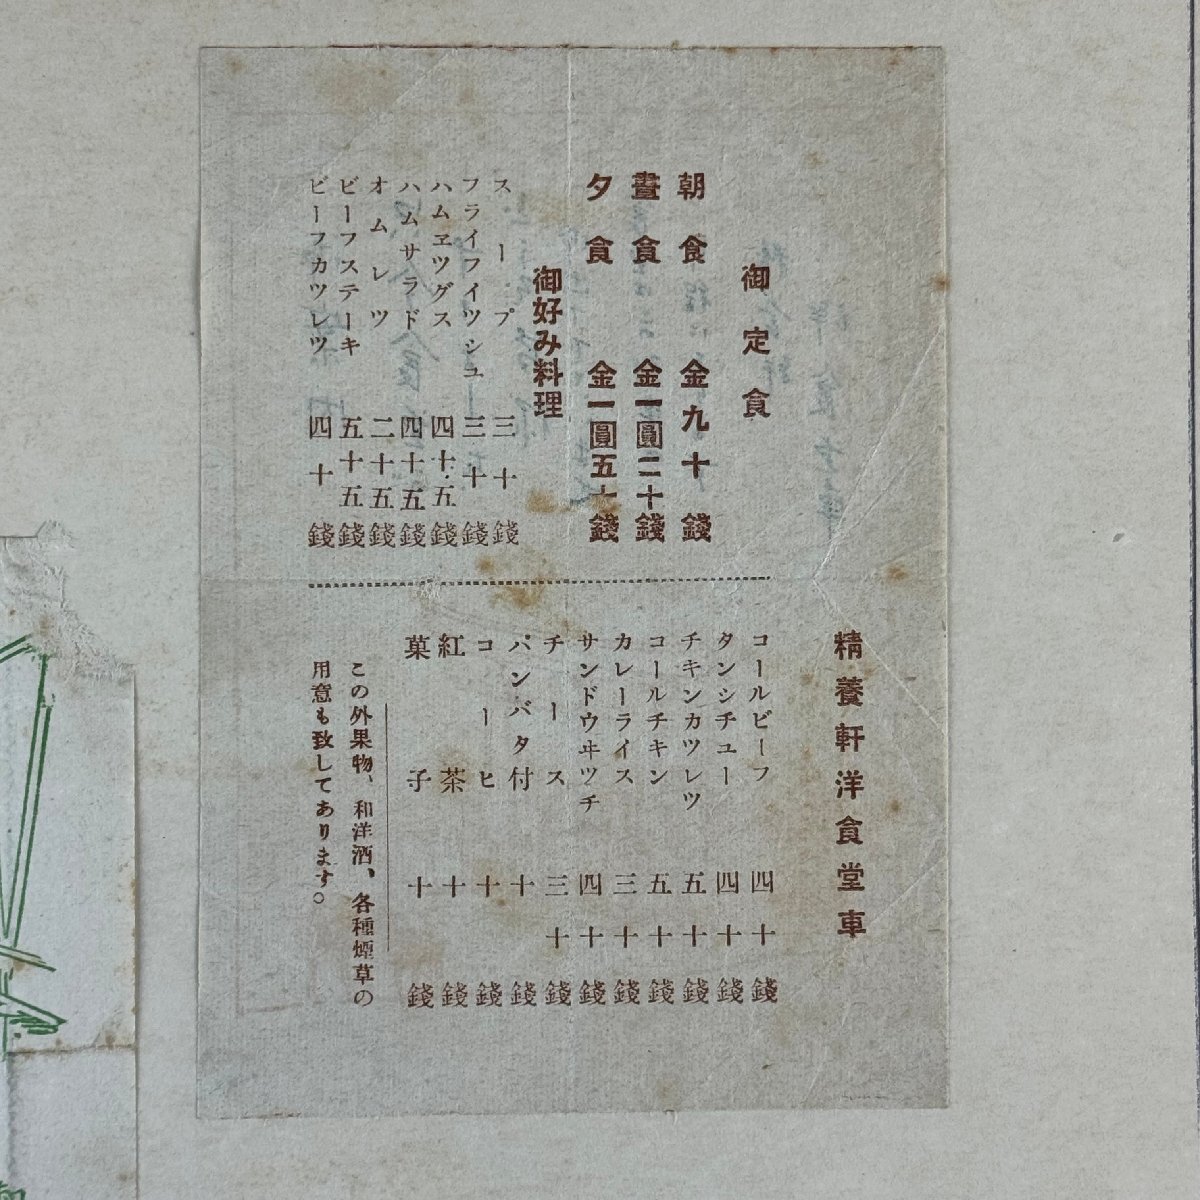 精養軒洋食堂車
御定食
朝食 金九十錢
晝食 金一圓二十錢
夕食 金一圓五十錢
御好み料理
スープ 三十錢
フライフイツシユ 三十錢
ハムヱツグス 四十五錢
ハムサラド 四十五錢
オムレツ 二十五錢
ビーフステーキ 五十五錢
ビーフカツレツ 四十錢
コールビーフ 四十錢
タンシチユー 四十錢
チキンカツレツ 五十錢
コールチキン 五十錢
カレーライス 三十錢
サンドウヰツチ 四十錢
チース 三十錢
パンバタ付 十錢
コーヒ 十錢
紅茶 十錢
菓子 十錢
この外果物、和洋酒、各種煙草の
用意も致してあります。